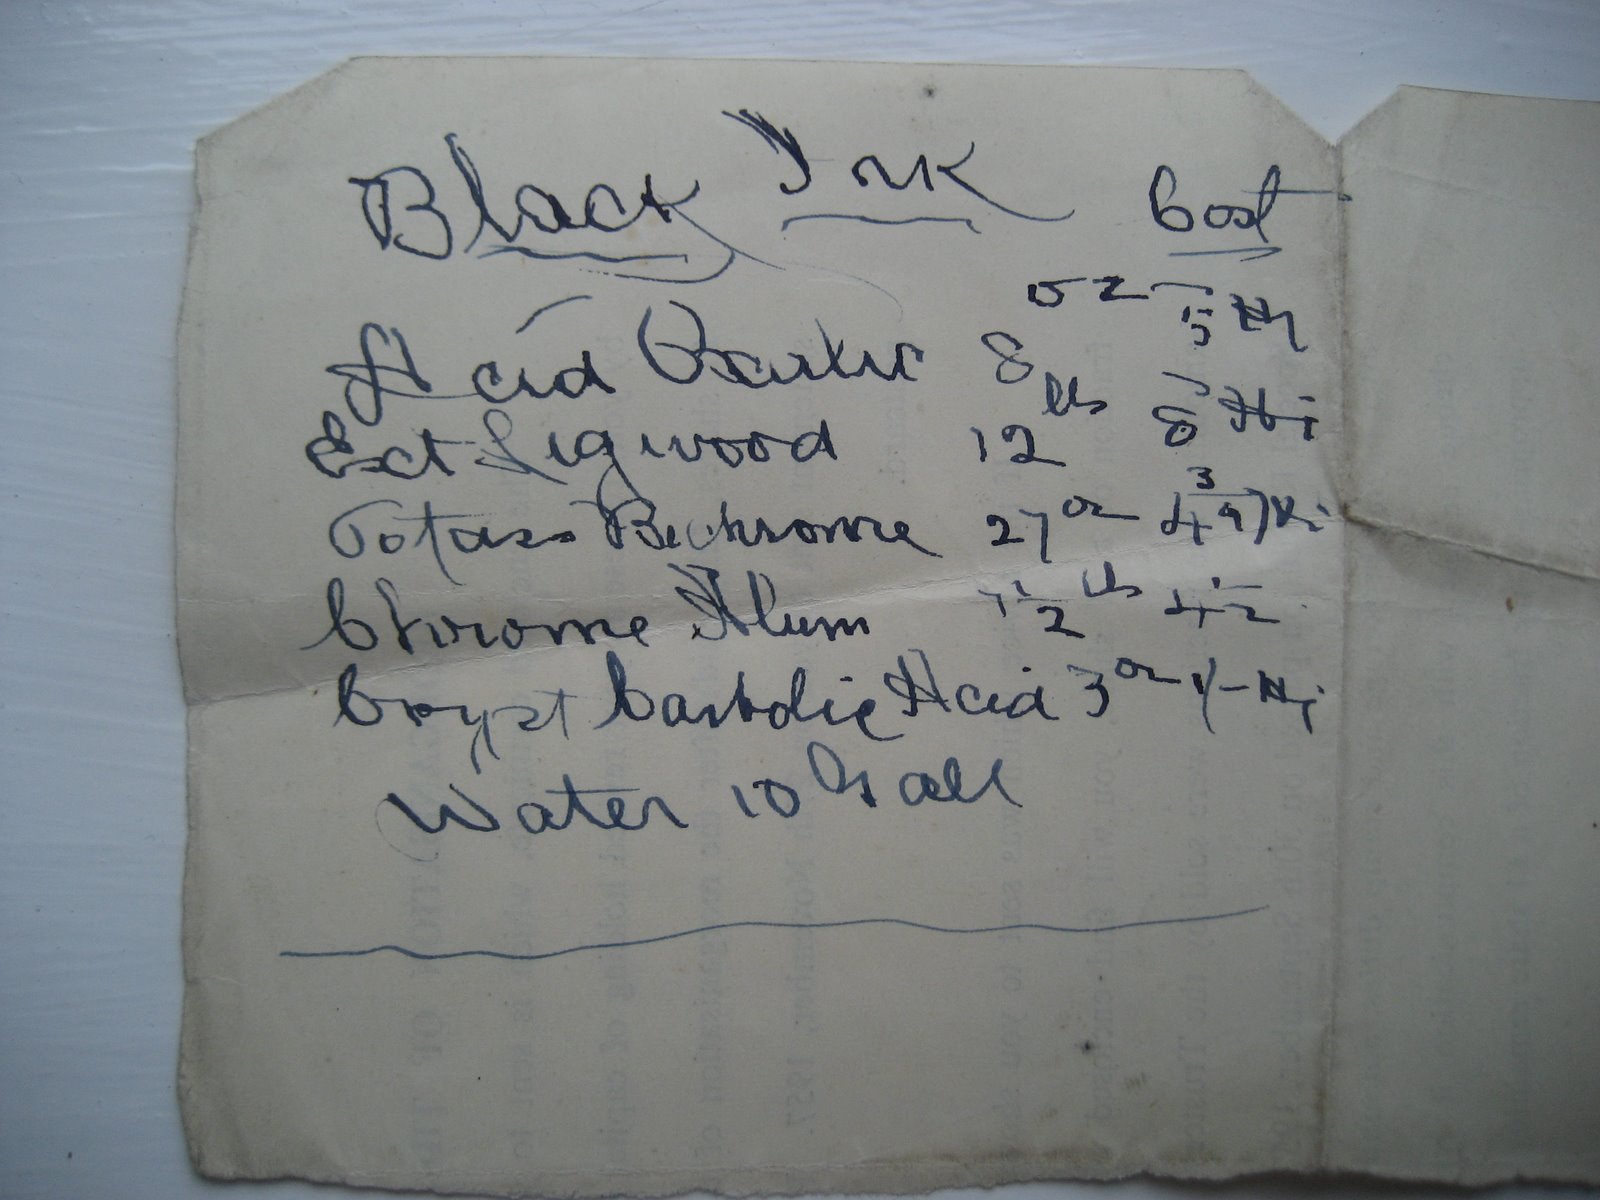 Black Ink Cost
Acid Oxalic 8 oz 5
Ext Logwood 12 lbs 8
Potass Bichrome 27 oz 4 3/4
Chrome Alum 1 1/2 lbs 4 1/2
Cryst Carbolic Acid 3 oz 1/-
Water 10 Gall